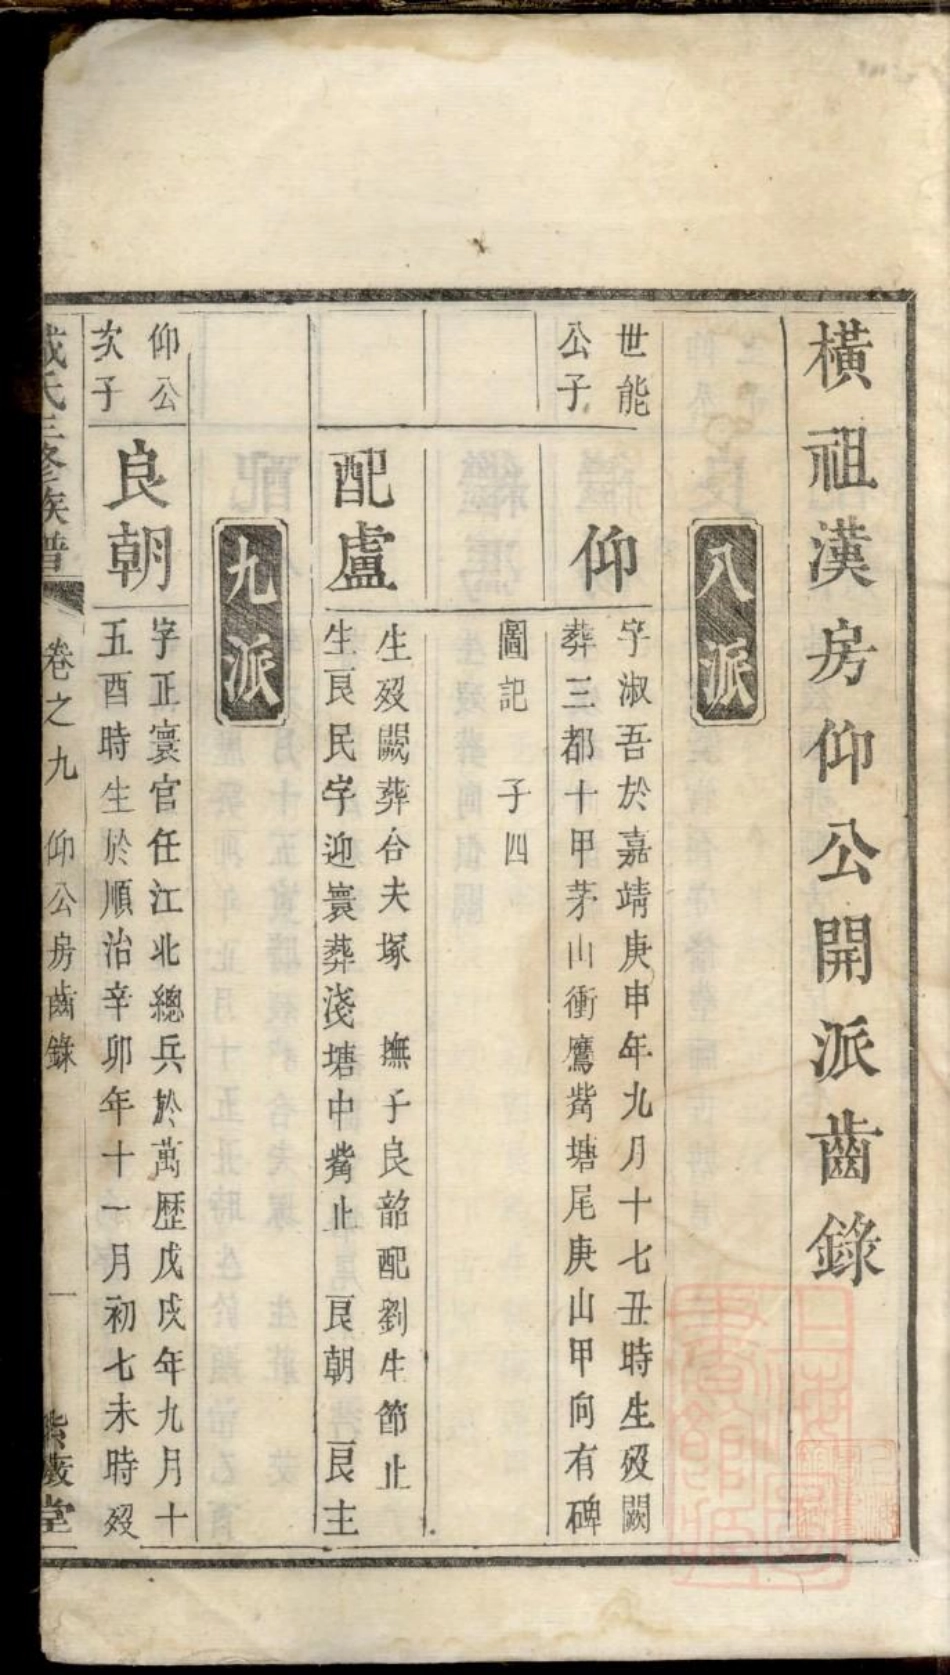 橫祖漢房仰公開派齒錄
八派
世能
公子
仰
字淑吾於嘉靖庚申年九月十七丑時生歿闕
葬三都十甲茅山衝鷹觜塘尾庚山甲向有碑
圖記 子四
配盧
生歿闕葬合夫塚 撫子良韶配劉生節止
生良民字迎寰葬淺塘中觜止 良朝 良主
九派
仰公
次子
良朝
字正寰官任江北總兵於萬歷戊戌年九月十
五酉時生於順治辛卯年十一月初七未時歿
氏三修族譜
卷之九 仰公房齒錄
一
紫薇堂